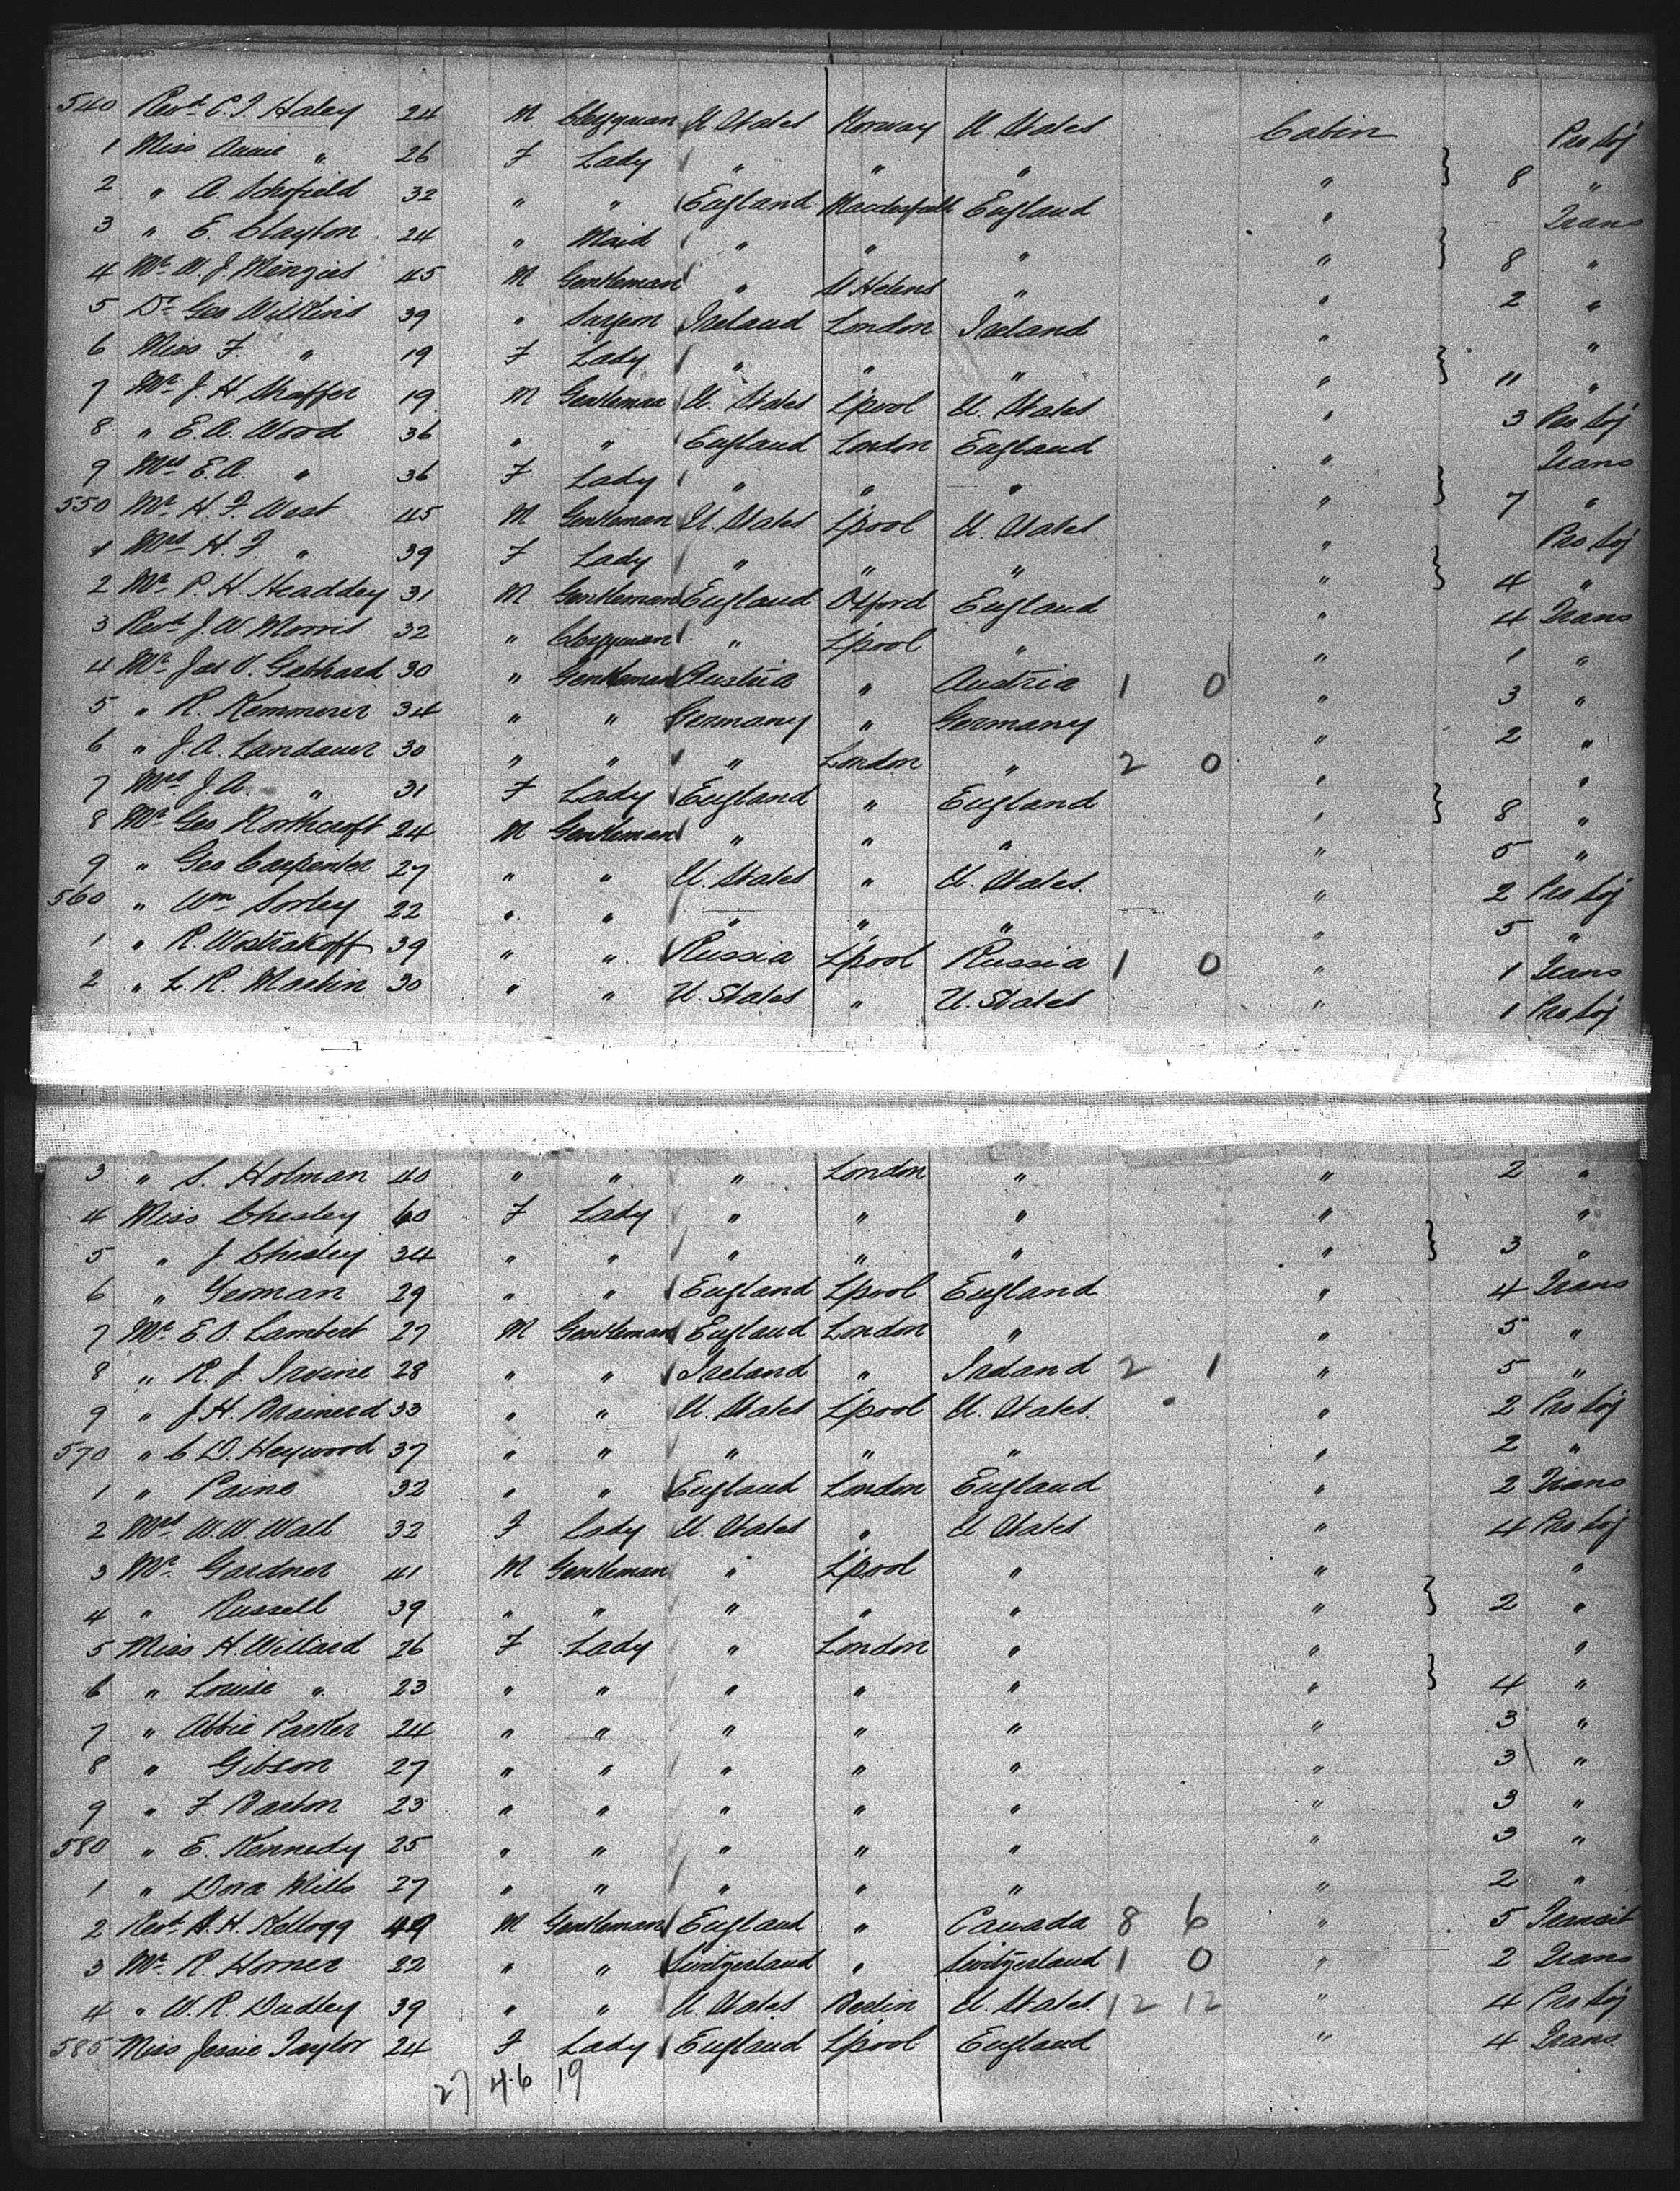 540 Revd C. J. Haley 24 M Clergyman U States Norway U States Cabin Pro Soj
1 Miss Annie " 26 F Lady " " " " } 8 "
2 " A. Schofield 32 " " England Macclesfield England " Trans
3 " E. Clayton 24 " Maid " " " " } 8 "
4 Mr W. J. Menzies 45 M Gentleman " St Helens " " 2 "
5 Dr Geo Wilkins 39 " Surgeon Ireland London Ireland " "
6 Miss F. " 19 F Lady " " " " } 11 "
7 Mr J. H. Shaffer 19 M Gentleman U. States L'pool U. States " 3 Pro Soj
8 " E. A. Wood 36 " " England London England " Trans
9 Mrs E. A. " 36 F Lady " " " " } 7 "
550 Mr H. F. West 45 M Gentleman U. States L'pool U. States " Pro Soj
1 Mrs H. F. " 39 F Lady " " " " } 4 "
2 Mr P. H. Headdey 31 M Gentleman England Oxford England " 4 Trans
3 Revd J. W. Morris 32 " Clergyman " L'pool " " 1 "
4 Mr Jas V. Gebhard 30 " Gentleman Austria " Austria 1 0 " 3 "
5 " R. Kemmerer 34 " " Germany " Germany " 2 "
6 " J. A. Landauer 30 " " " London " 2 0 " "
7 Mrs J. A. " 31 F Lady England " England " } 8 "
8 Mr Geo Northcroft 24 M Gentleman " " " " 5 "
9 " Geo Carpenter 27 " " U. States " U. States. " 2 Pro Soj
560 " Wm Sorley 22 " " " " " " 5 "
1 " R. Wostrakoff 39 " " Russia L'pool Russia 1 0 " 1 Trans
2 " L. R. Machin 30 " " U. States " U. States " 1 Pro Soj
3 " S. Holman 40 " " " London " " 2 "
4 Miss Chesley 60 F Lady " " " " "
5 " J. Chesley 34 " " " " " " } 3 "
6 " Yeoman 29 " " England L'pool England " 4 Trans
7 Mr E. O. Lambert 27 M Gentleman England London " " 5 "
8 " R. J. Irvine 28 " " Ireland " Ireland 2 1 " 5 "
9 " J. H. Brainerd 33 " " U. States L'pool U. States. " 2 Pro Soj
570 " C. D. Heywood 37 " " " " " " 2 "
1 " Paine 32 " " England London England " 2 Trans
2 Mrs W. W. Wall 32 F Lady U. States " U States " 4 Pro Soj
3 Mr Gardner 41 M Gentleman " L'pool " " "
4 " Russell 39 " " " " " " } 2 "
5 Miss H. Willard 26 F Lady " London " " "
6 " Louise " 23 " " " " " " } 4 "
7 " Abbie Parker 24 " " " " " " 3 "
8 " Gibson 27 " " " " " " 3 "
9 " F. Barton 23 " " " " " " 3 "
580 " E. Kennedy 25 " " " " " " 3 "
1 " Dora Mills 27 " " " " " " 2 "
2 Revd S. H. Kellogg 49 M Gentleman England " Canada 8 6 " 5 Transit
3 Mr R. Horner 22 " " Switzerland " Switzerland 1 0 " 2 Trans
4 " W. R. Dudley 39 " " U. States Berlin U. States 12 12 " 4 Pro Soj
585 Miss Jessie Taylor 24 F Lady England L'pool England " 4 Trans.
27 46 19